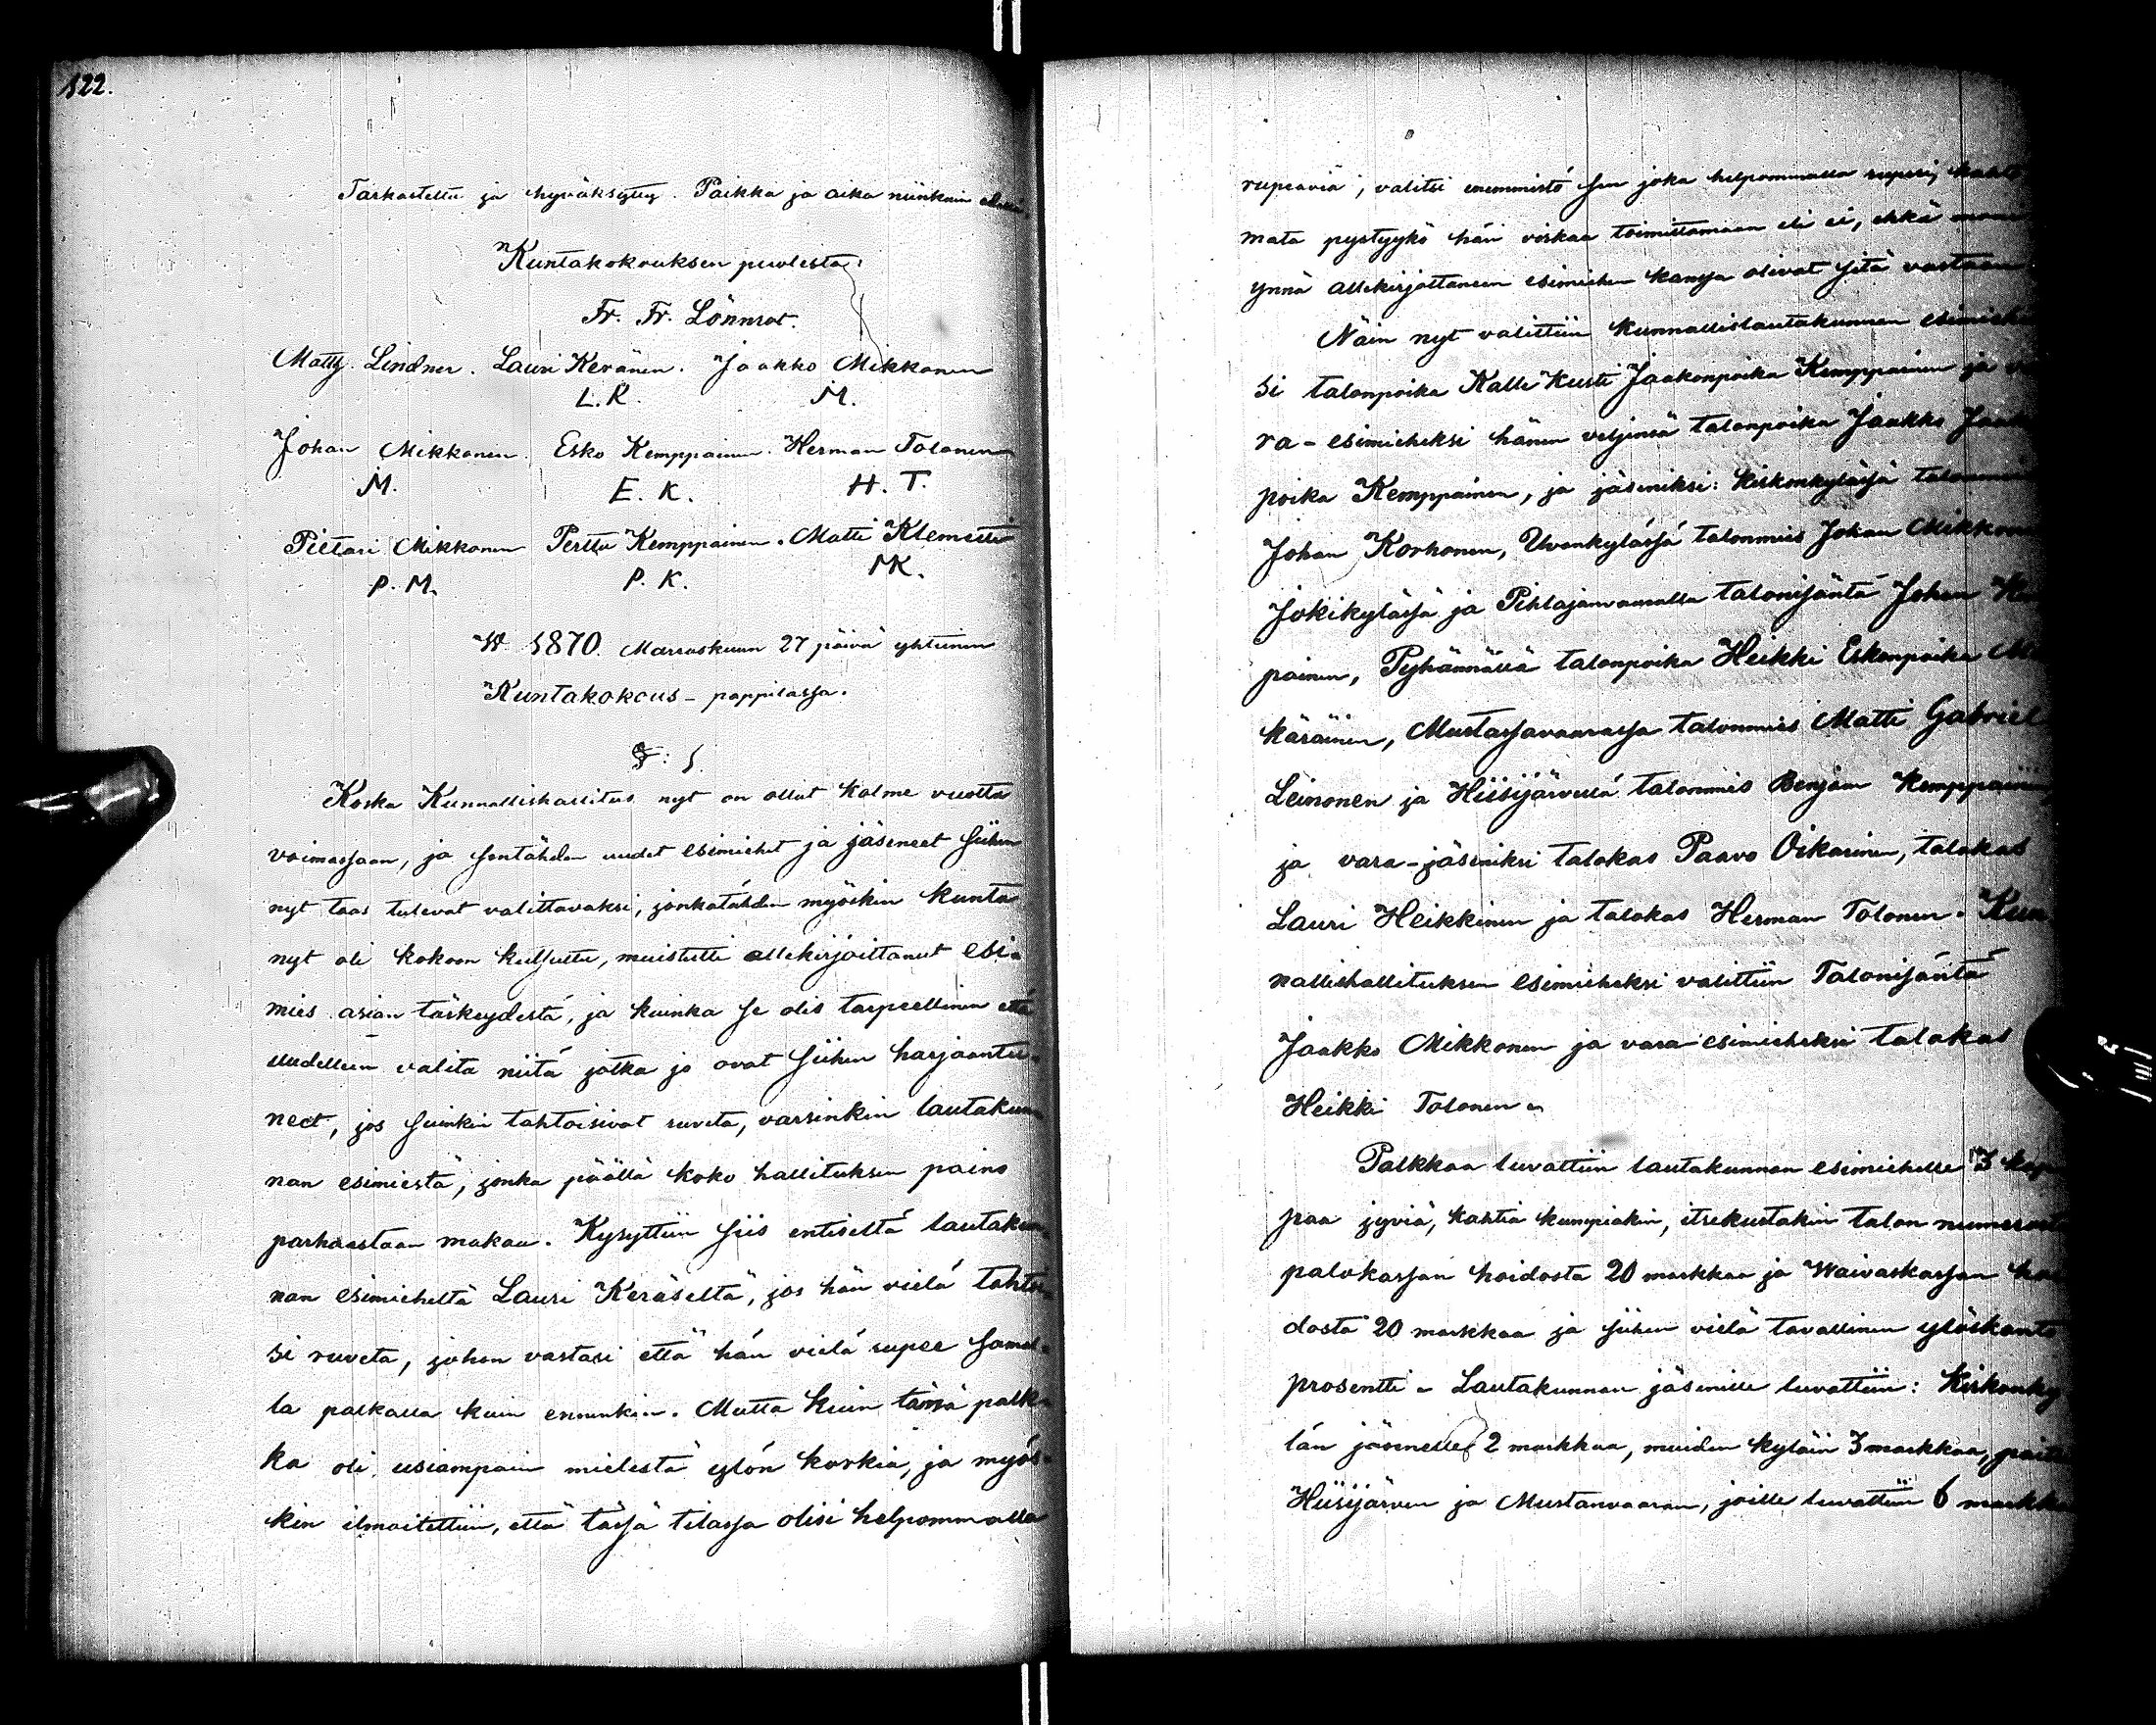 122.
Tarkastettu ja hyväksytty. Paikka ja aika niinkuin
Kuntakokouksen puolesta:
Fr. Fr. Lönnrot.
Matts. Lindner. Lauri Keränen. Jaakko Mikkonen
L. K. M.
Johan Mikkonen. Esko Kemppainen. Herman Tolonen
M. E. K. H. T.
Pietari Mikkonen Perttu Kemppainen. Matti Klemetti
P. M. P. K. MK.
W. 1870. Marraskuun 27 päivä yhteinen
Kuntakokous - pappilassa.
§: 1.
Koska Kunnallishallitus nyt on ollut kolme vuotta
voimassaan, ja sentähden uudet esimiehet ja jäseneet siihen
nyt taas tulevat valittavaksi, jonkatähden myöskin kunta
nyt oli kokoon kutsuttu, muistutti allekirjoittanut esi-
mies asian tärkeydestä, ja kuinka se olis tarpeellinen että
uudelleen valita niitä jotka jo ovat siihen harjaantu-
neet, jos suinkin tahtoisivat ruveta, varsinkin lautakun
nan esimiestä, jonka päällä koko hallituksen paino
parhaastaan makaa. Kysyttiin siis entiseltä lautakun
nan esimieheltä Lauri Keräseltä, jos hän vielä tahtoi
si ruveta, johon vastasi että hän vielä rupee samal-
la palkalla kuin ennenkin. Mutta kuin tämä palk-
ka oli usiampain mielestä ylön korkia, ja myös-
kin ilmoitettiin, että tässä tilassa olisi helpommalla
rupeavia, valitsi enemmistö sen joka helpommalla rupesi,
mata pystyykö hän virkaa toimittamaan eli ei, ehkä
ynnä allekirjoittaneen esimiehen kanssa olivat sitä vastaan
Näin nyt valittiin kunnallislautakunnan esimiehek
si talonpoika Kalle Kusti Jaakonpoika Kemppainen ja va
ra-esimieheksi hänen veljensä talonpoika Jaakko Jaak
poika Kemppainen, ja jäseniksi: Kirkonkylässä
Johan Korhonen, Uvankylässä talonmies Johan Mikkonen
Jokikylässä ja Pihlajanvaaralla talonisäntä Johan
painen, Pyhännällä talonpoika Heikki Eskonpoika
käräinen, Mustassavaarassa talonmies Matti Gabriel
Leinonen ja Hiisijärvellä talonmies Benjam Kemppainen
ja vara-jäseniksi talokas Paavo Oikarinen, talokas
Lauri Heikkinen ja talokas Herman Tolonen. Kun
nallishallituksen esimieheksi valittiin Talonisäntä
Jaakko Mikkonen ja vara-esimieheksi talokas
Heikki Tolonen.
Palkkaa luvattiin lautakunnan esimiehelle 3
paa jyviä, kahtia kumpiakin, itsekustakin talon numerosta
palokassan hoidosta 20 markkaa ja Waivaskassan hoi
dosta 20 markkaa ja siihen vielä tavallinen ylöskanto
prosentti. Lautakunnan jäsenille luvattiin: Kirkonky
län jäsenelle 2 markkaa, muiden kyläin 3 markkaa, paitsi
Hiisijärven ja Mustanvaaran, joille luvattiin 6 markkaa